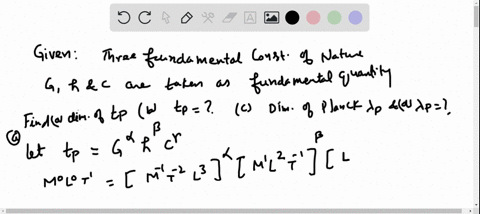 Given: Three fundamental Const. of Nature
G, ħ & C are taken as fundamental quantity
Find (a) dim. of tp (b) tp = ? (c) Dim. of Planck λp & (d) λp = ?
(a)
let tp = G^α ħ^β C^r
M⁰L⁰T¹ = [M⁻¹T⁻²L³]^α [M¹L²T⁻¹]^β [L